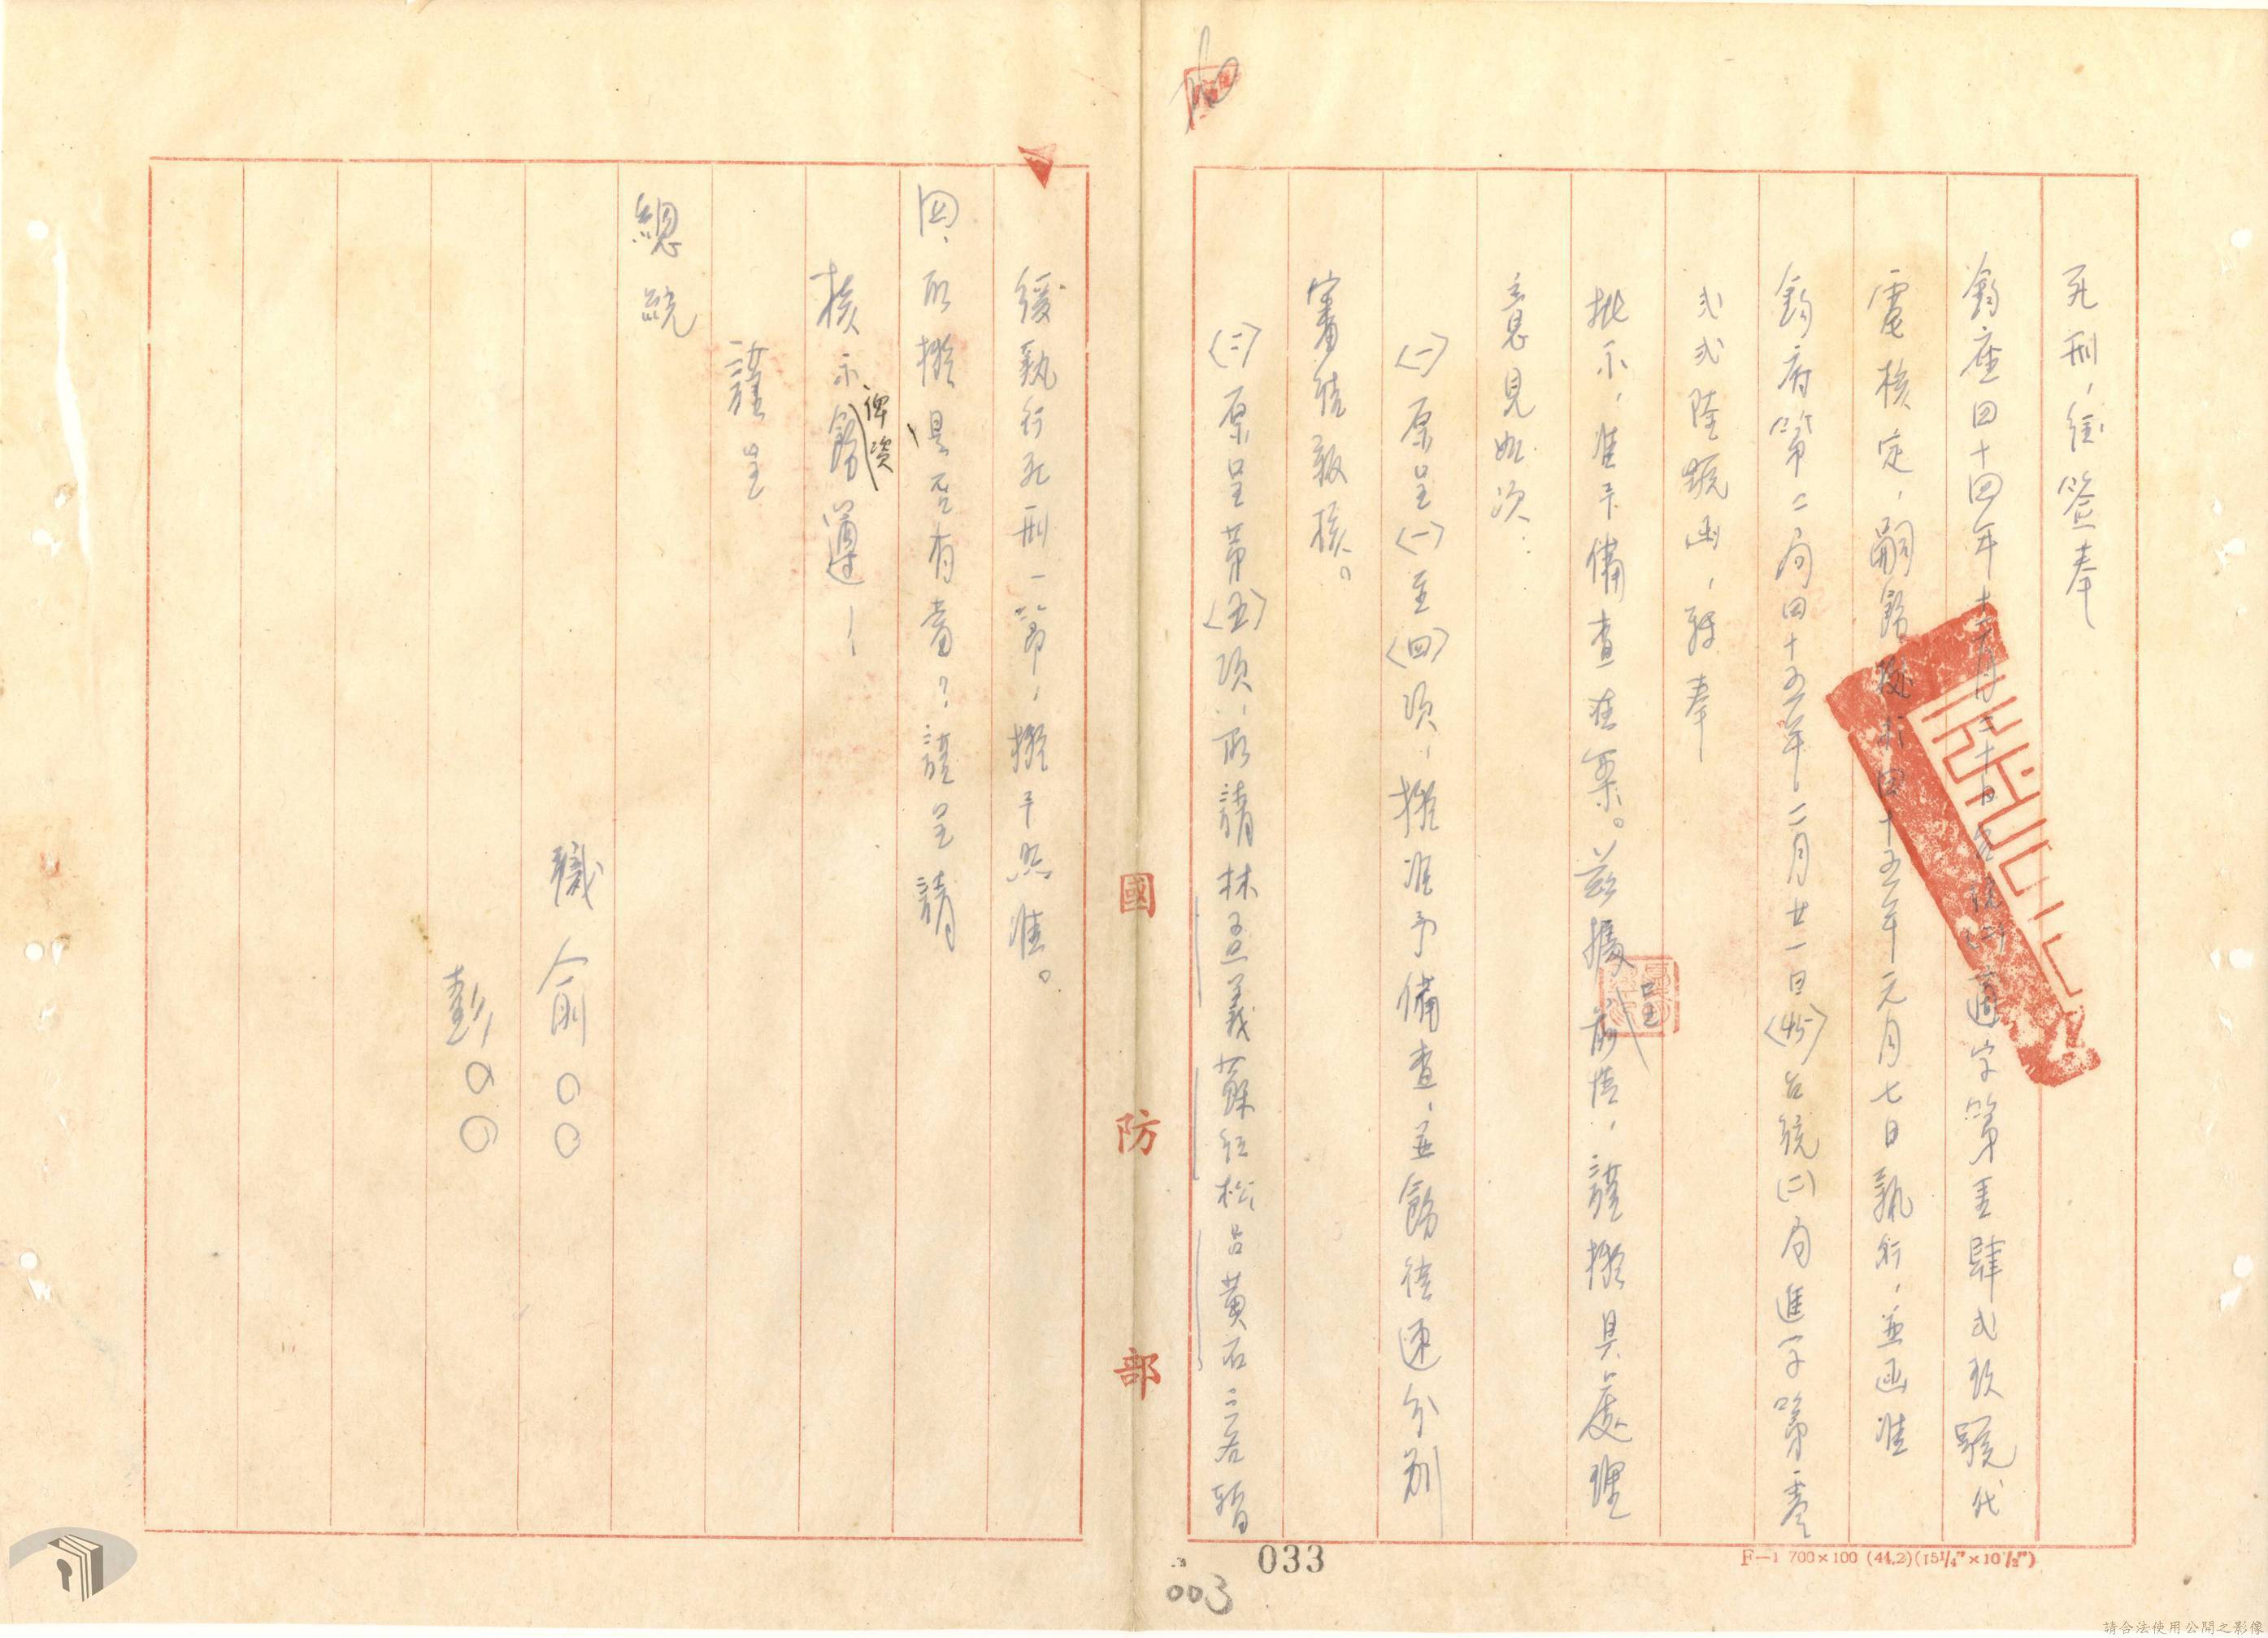 死刑，經簽奉
鈞座四十四年十二月三十日台統(二)適字第壹肆式玖號代
電核定，嗣飭
四十五年元月七日執行，並函准
鈞府第二局四十五年二月廿一日(45)台統(二)局進字第零
式式陸號函，轉奉
批示，准予備查在案。茲據
呈
前情，謹擬具處理
意見如次：
(一)原呈(一)至(四)項，擬准予備查，並飭從速分別
審結報核。
(二)原呈第(五)項，所請林孟義蘇紅松呂黃石三名暫
緩執行死刑一節，擬予照准。
四、所擬是否有當？謹呈請
核示飭遵！
俾資
謹呈
總統
職俞○○
彭○○
國防部
033
003
F—1 700×100 (44.2)(15¼"×10½")
請合法使用公開之影像